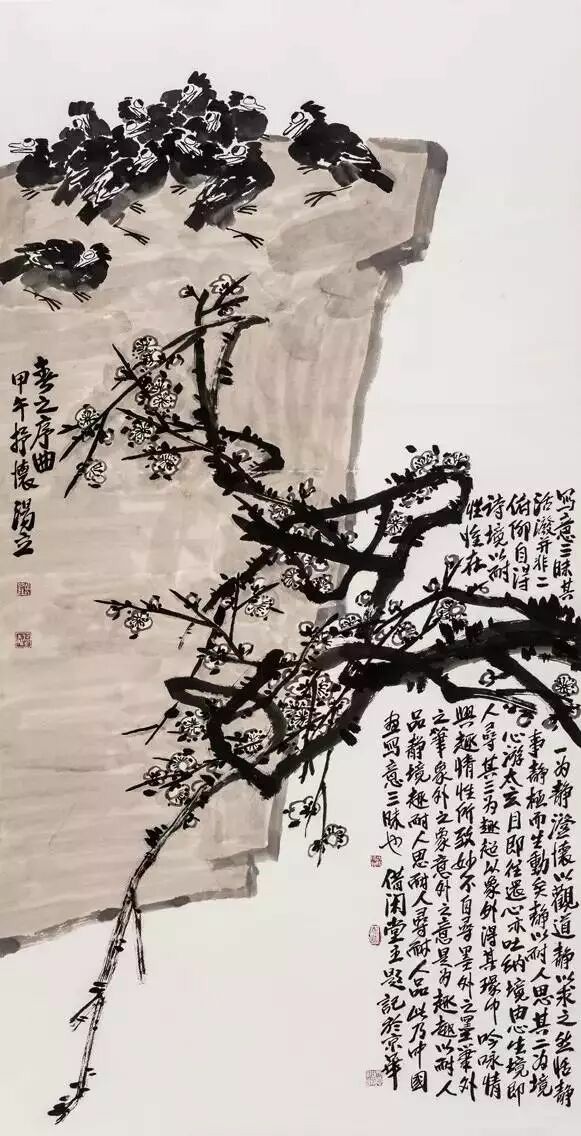 春之序曲
甲午抒懷 湯立
写意三昧其一为静澄懷以觀道静以求之然恬静
活潑并非二事静極而生動矣静以耐人思其二为境
俯仰自得心游太玄目即往還心亦吐纳境由心生境即
诗境以耐人尋其三为趣超以象外得其環中吟咏情
性恰在興趣情性所致妙不自尋墨外之墨筆外
之筆象外之象意外之意是为趣趣以耐人
品静境趣耐人思耐人尋耐人品此乃中國
画写意三昧也 借闲堂主題記於京華